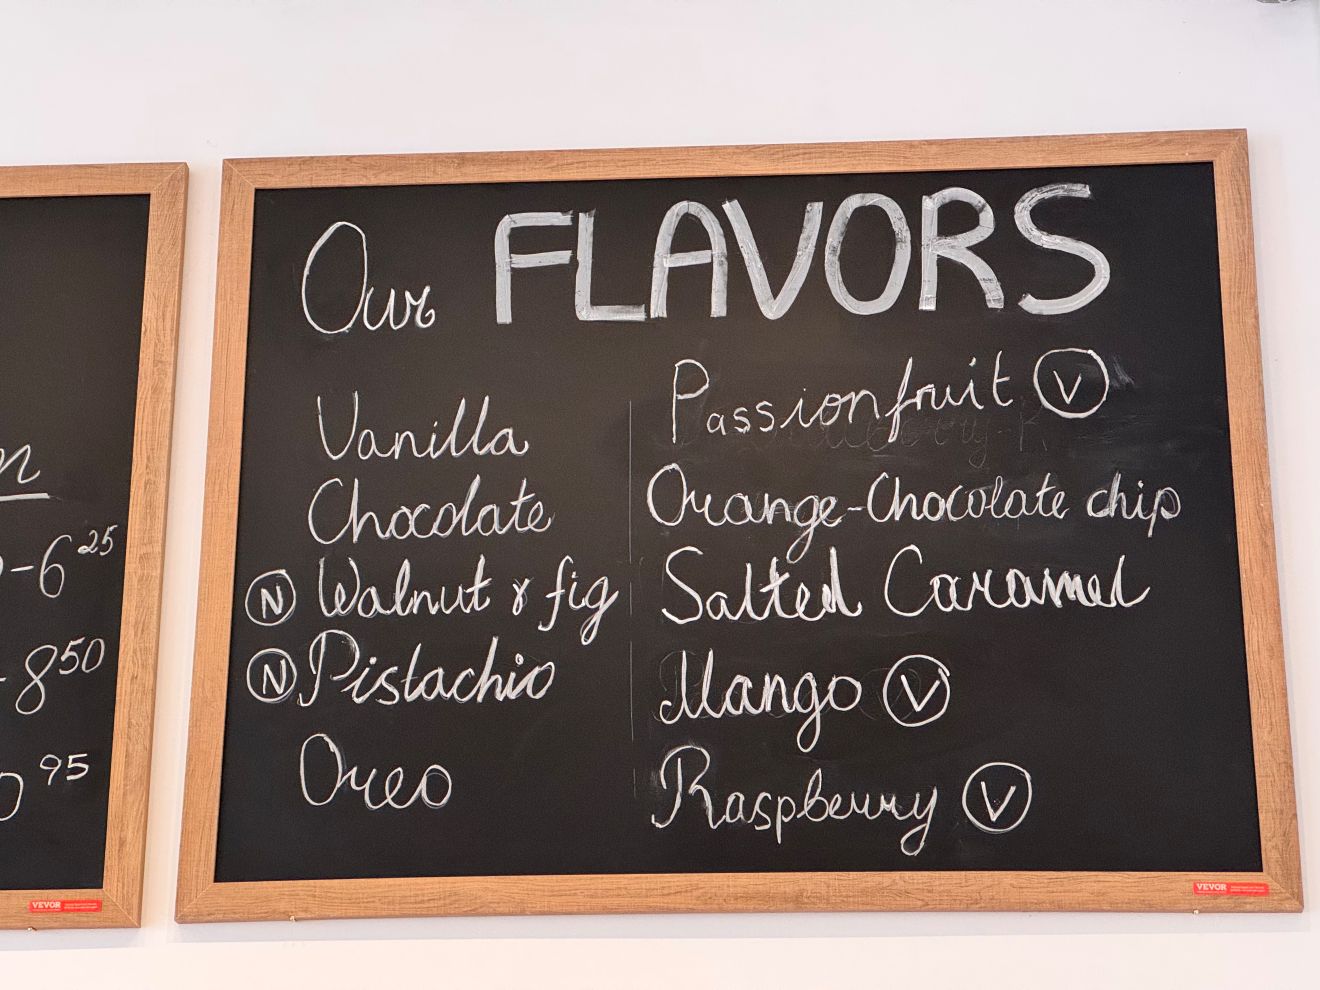 Our FLAVORS
Vanilla
Chocolate
Ⓝ Walnut & fig
Ⓝ Pistachio
Oreo
Passionfruit Ⓥ
Orange-Chocolate chip
Salted Caramel
Mango Ⓥ
Raspberry Ⓥ
-6 25
-8 50
95
VEVOR
VEVOR